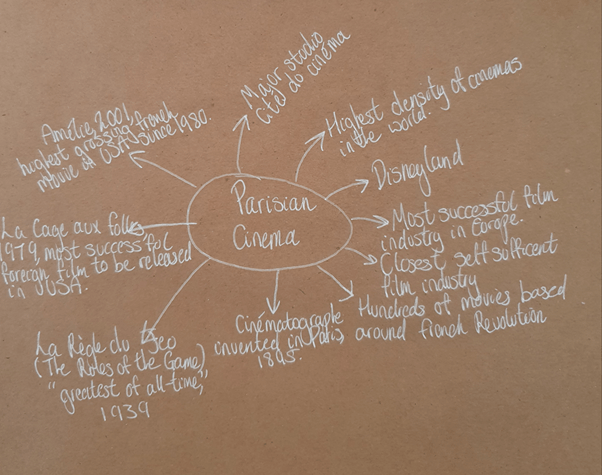 Parisian
Cinema
Major studio
cité do cinéma
Highest density of cinemas
in the world.
Disneyland
Most successful film
industry in Europe.
Closest self sufficent
film industry
Hundreds of movies based
around french Revolution
Cinématographe
invented in Paris,
1895.
La Règle du Jeo
(The Roles of the Game)
"greatest of all-time,"
1939
La Cage aux folles,
1979, most successful
foreign film to be released
in USA.
Amélie, 2001,
highest grossing french
movie at USA since 1980.